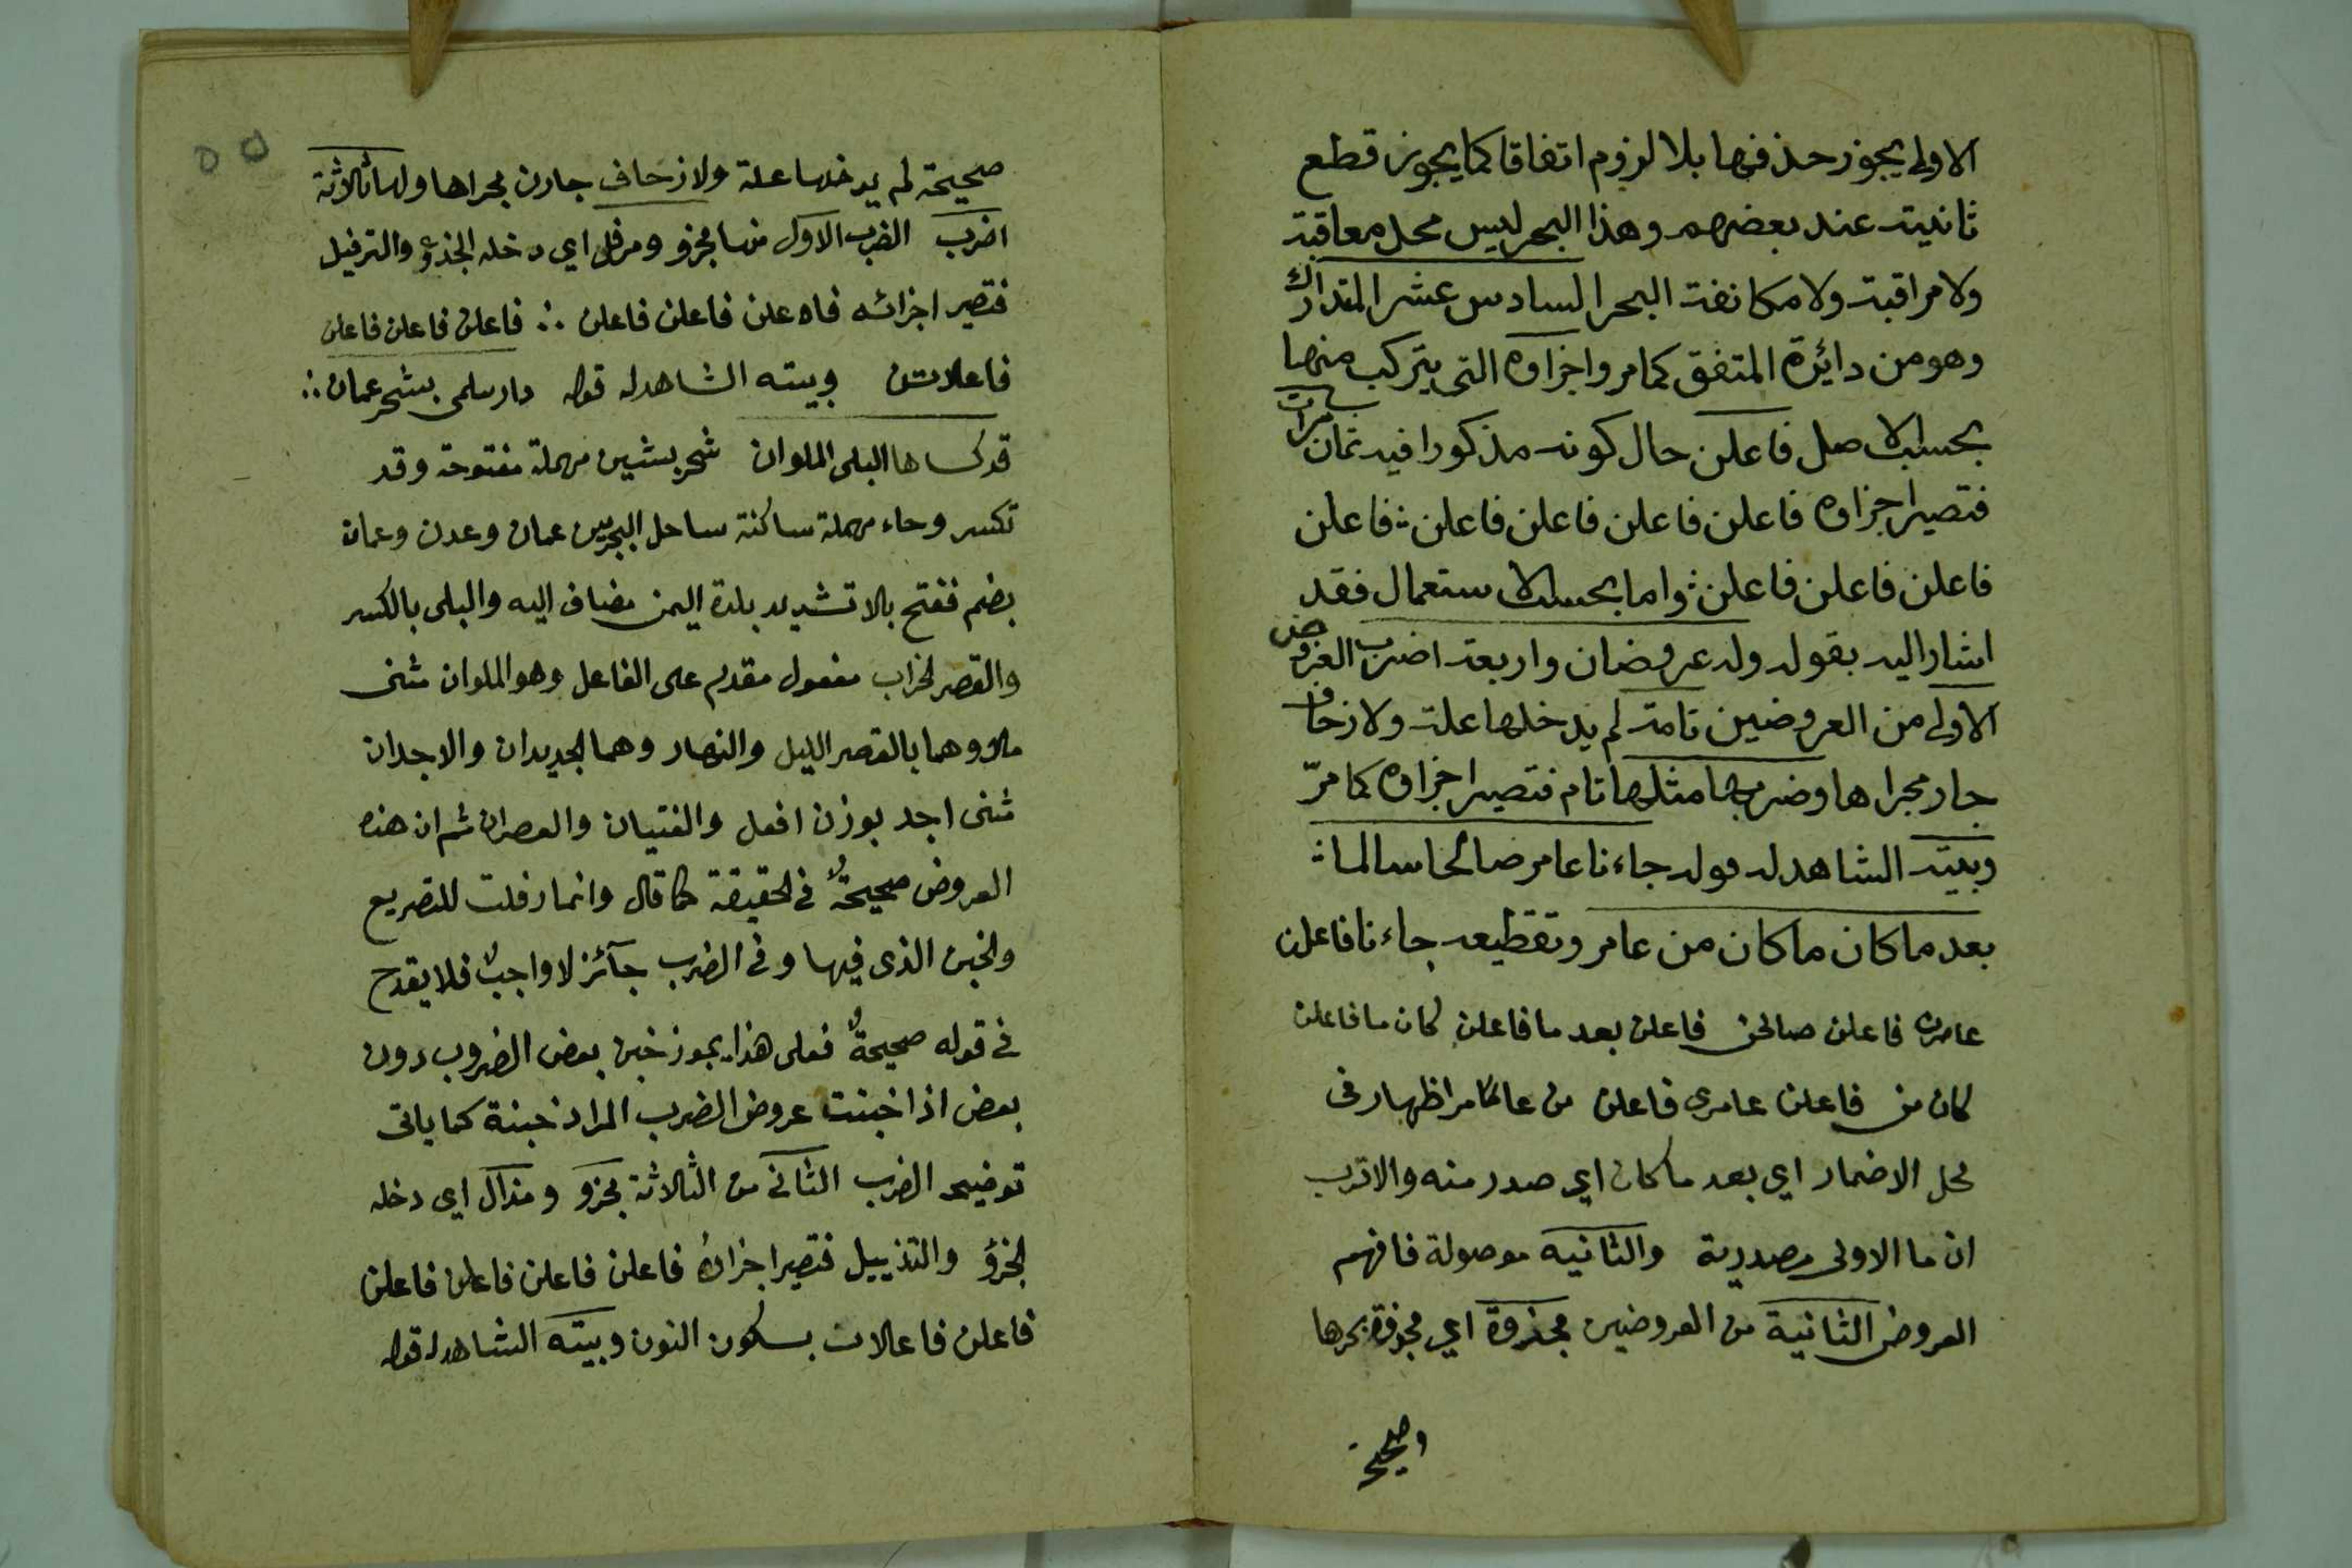 الاولى يجوز حذفها بلا لزوم اتفاقا كما يجوز قطع
ثانيته عند بعضهم وهذا البحر ليس محل معاقبة
ولا مراقبة ولا مكانفة البحر السادس عشر المتدارك
وهو من دائرة المتفق كما مر واجزاوه التى يتركب منها
بحسب الاصل فاعلن حال كونه مذكورا فيه ثمان مرات
فتصير اجزاوه فاعلن فاعلن فاعلن فاعلن ؞ فاعلن
فاعلن فاعلن فاعلن ؞ واما بحسب الاستعمال فقد
اشار اليه بقوله وله عروضان واربعة اضرب العروض
الاولى من العروضين تامة لم يدخلها علة ولا زحاف
جار مجراها وضربها مثلها تام فتصير اجزاوه كما مرّ
وبيته الشاهد له قوله جاءنا عامر صالحا سالما ؞
بعد ما كان ما كان من عامر وتقطيعه جاءنا فاعلن
عامرن فاعلن صالحن فاعلن بعد ما فاعلن كان ما فاعلن
كان من فاعلن عامرى فاعلن من عامر اظهار فى
محل الاضمار اي بعد ما كان اي صدر منه والاقرب
ان ما الاولى مصدرية والثانيه موصولة فافهم
العروض الثانية من العروضين مجزوة اي مجزوة بحرها
وصحيحة
٥٥
صحيحة لم يدخلها علة ولا زحاف جارن مجراها ولها ثلاثة
اضرب الضرب الاول منها مجزو ومرفل اي دخله الجزؤ والترفيل
فتصير اجزائه فاعلن فاعلن فاعلن ؞ فاعلن فاعلن فاعلن
فاعلاتن وبيته الشاهد له قوله دار سلمى بشحر عمان ؞
قد كساها البلى الملوان شحر بشين مهملة مفتوحة وقد
تكسر وحاء مهملة ساكنة ساحل البحر بين عمان وعدن وعمان
بضم ففتح بلا تشديد بلدة اليمن مضاف اليه والبلى بالكسر
والقصر الخراب مفعول مقدم على الفاعل وهو الملوان مثنى
ملا وهما بالقصر الليل والنهار وهما الجديدان والاجدان
مثنى اجد بوزن افعل والفتيان والعصران ثم ان هذه
العروض صحيحةٌ فى الحقيقة كما قال وانما رفلت للتصريع
والخبن الذى فيها وفى الضرب جآئز لا واجبٌ فلا يقدح
فى قوله صحيحةٌ فعلى هذا يجوز خبن بعض الضروب دون
بعض اذا خبنت عروض الضرب المراد خبنة كما ياتى
توضيحه الضرب الثانى من الثلاثة مجزو ومذال اي دخله
الجزؤ والتذييل فتصير اجزاؤه فاعلن فاعلن فاعلن فاعلن
فاعلن فاعلان بسكون النون وبيته الشاهد له قوله